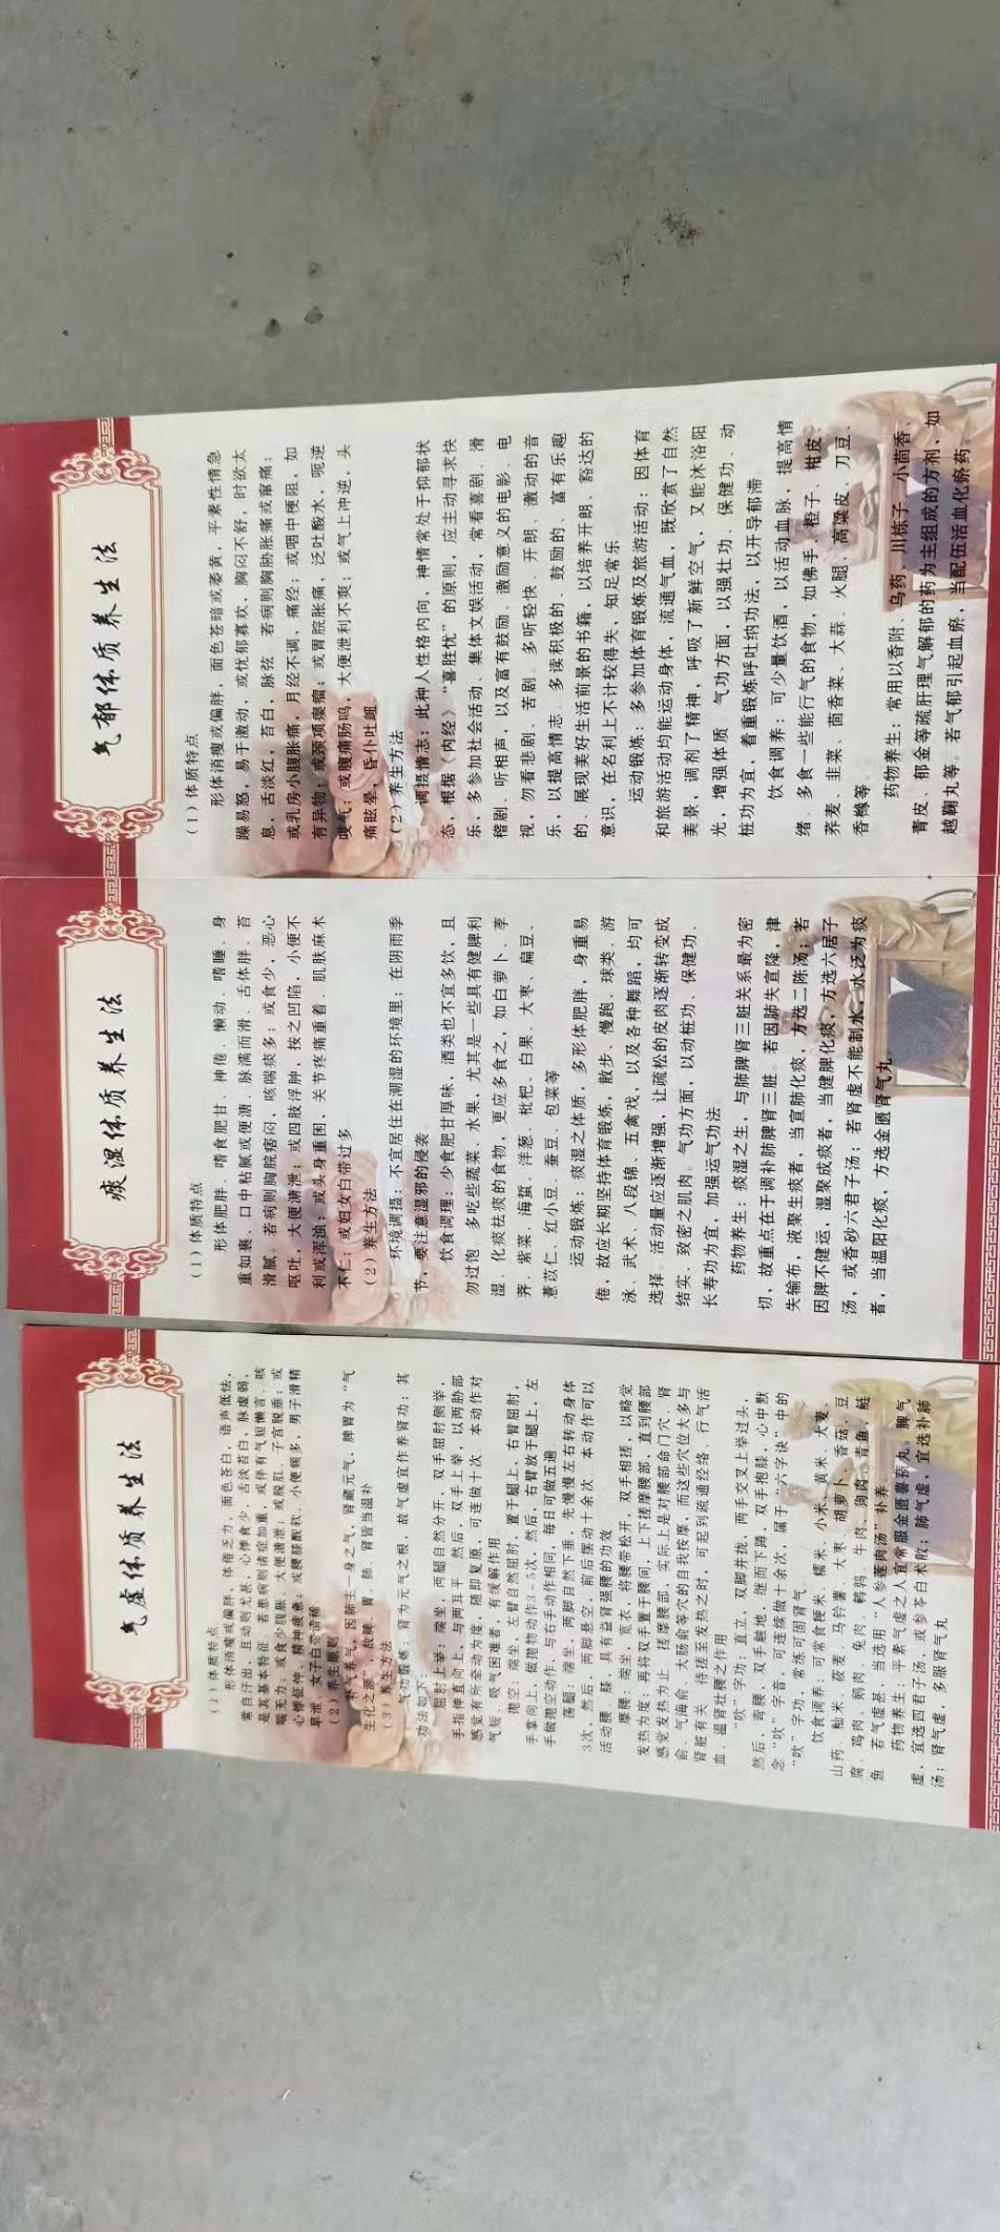 气虚体质养生法
(1)体质特点
形体消瘦或偏胖,体倦乏力,面色苍白,语声低怯,
常自汗出,且动则尤甚,心悸食少,舌淡苔白,脉虚弱,
是其基本特征。若患病则诸症加重,或伴有气短懒言、咳
喘无力;或食少腹胀、大便溏泄;或脱肛、子宫脱垂;或
心悸怔忡、精神疲惫;或腰膝酸软、小便频多,男子滑精
早泄、女子白带清稀
(2)养生原则
补气养气,因肺主一身之气,肾藏元气,脾胃为“气
生化之源”,故脾、胃、肺、肾皆当温补
(3)养生方法
气功锻炼:肾为元气之根,故气虚宜作养肾功:其
功法如下:
屈肘上举:端坐,两腿自然分开,双手屈肘侧举,
手指伸直向上,与两耳平。然后,双手上举,以两胁部
感觉有所牵动为度,随即复原,可连做十次。本动作对
气短、吸气困难者,有缓解作用
抛空:端坐,左臂自然屈肘,置于腿上,右臂屈肘,
手掌向上,做抛物动作3-5次,然后,右臂放于腿上,左
手做抛空动作,与右手动作相同,每日可做五遍
荡腿:端坐,两脚自然下垂,先慢慢左右转动身体
3次,然后,两脚悬空,前后摆动十余次。本动作可以
活动腰、膝,具有益肾强腰的功效
摩腰:端坐,宽衣,将腰带松开,双手相搓,以略觉
发热为度;再将双手置于腰间,上下搓摩腰部,直到腰部
感觉发热为止。搓摩腰部,实际上是对腰部命门穴、肾
俞、气海俞、大肠俞等穴的自我按摩,而这些穴位大多与
肾脏有关。待搓至发热之时,可起到疏通经络、行气活
血、温肾壮腰之作用
“吹”字功:直立,双脚并拢,两手交叉上举过头,
然后,弯腰,双手触地,继而下蹲,双手抱膝,心中默
念“吹”字音,可连续做十余次,属于“六字诀”中的
“吹”字功,常练可固肾气
饮食调养:可常食粳米、糯米、小米、黄米、大麦、
山药、籼米、莜麦、马铃薯、大枣、胡萝卜、香菇、豆
腐、鸡肉、鹅肉、兔肉、鹌鹑、牛肉、狗肉、青鱼、鲢
鱼。若气虚甚,当选用“人参莲肉汤”补养
药物养生:平素气虚之人宜常服金匮薯蓣丸。脾气
虚,宜选四君子汤,或参苓白术散;肺气虚,宜选补肺
汤;肾气虚,多服肾气丸
痰湿体质养生法
(1)体质特点
形体肥胖、嗜食肥甘、神倦、懒动、嗜睡、身
重如裹、口中粘腻或便溏、脉濡而滑、舌体胖、苔
滑腻。若病则胸脘痞闷,咳喘痰多;或食少,恶心
呕吐,大便溏泄;或四肢浮肿,按之凹陷,小便不
利或浑浊;或头身重困,关节疼痛重着、肌肤麻木
不仁;或妇女白带过多
(2)养生方法
环境调摄:不宜居住在潮湿的环境里;在阴雨季
节,要注意湿邪的侵袭
饮食调理:少食肥甘厚味,酒类也不宜多饮,且
勿过饱。多吃些蔬菜、水果,尤其是一些具有健脾利
湿、化痰祛痰的食物,更应多食之,如白萝卜、荸
荠、紫菜、海蜇、洋葱、枇杷、白果、大枣、扁豆、
薏苡仁、红小豆、蚕豆、包菜等
运动锻炼:痰湿之体质,多形体肥胖,身重易
倦,故应长期坚持体育锻炼,散步、慢跑、球类、游
泳、武术、八段锦、五禽戏,以及各种舞蹈,均可
选择。活动量应逐渐增强,让疏松的皮肉逐渐转变成
结实、致密之肌肉。气功方面,以动桩功、保健功、
长寿功为宜,加强运气功法
药物养生:痰湿之生,与肺脾肾三脏关系最为密
切,故重点在于调补肺脾肾三脏。若因肺失宣降,津
失输布,液聚生痰者,当宜肺化痰,方选二陈汤;若
因脾不健运,湿聚成痰者,当健脾化痰,方选六居子
汤,或香砂六君子汤;若肾虚不能制水,水泛为痰
者,当温阳化痰,方选金匮肾气丸
气郁体质养生法
(1)体质特点
形体消瘦或偏胖,面色苍暗或萎黄,平素性情急
躁易怒,易于激动,或忧郁寡欢,胸闷不舒,时欲太
息,舌淡红,苔白,脉弦。若病则胸胁胀痛或窜痛;
或乳房小腹胀痛,月经不调,痛经;或咽中梗阻,如
有异物;或颈项瘿瘤;或胃脘胀痛,泛吐酸水,呃逆
嗳气;或腹痛肠鸣,大便泄利不爽;或气上冲逆,头
痛眩晕,昏仆吐衄
(2)养生方法
调摄情志:此种人性格内向,神情常处于抑郁状
态,根据《内经》“喜胜忧”的原则,应主动寻求快
乐,多参加社会活动、集体文娱活动,常看喜剧、滑
稽剧、听相声,以及富有鼓励、激励意义的电影、电
视,勿看悲剧、苦剧。多听轻快、开朗、激动的音
乐,以提高情志。多读积极的、鼓励的、富有乐趣
的、展现美好生活前景的书籍,以培养开朗、豁达的
意识,在名利上不计较得失,知足常乐
运动锻炼:多参加体育锻炼及旅游活动;因体育
和旅游活动均能运动身体,流通气血,既欣赏了自然
美景,调剂了精神,呼吸了新鲜空气,又能沐浴阳
光,增强体质。气功方面,以强壮功、保健功、动
桩功为宜,着重锻炼呼吐纳功法,以开导郁滞
饮食调养:可少量饮酒,以活动血脉,提高情
绪。多食一些能行气的食物,如佛手、橙子、柑皮、
荞麦、韭菜、茴香菜、大蒜、火腿、高粱皮、刀豆、
香橼等
药物养生:常用以香附、乌药、川栋子、小茴香、
青皮、郁金等疏肝理气解郁的药为主组成的方剂,如
越鞠丸等。若气郁引起血瘀,当配伍活血化瘀药